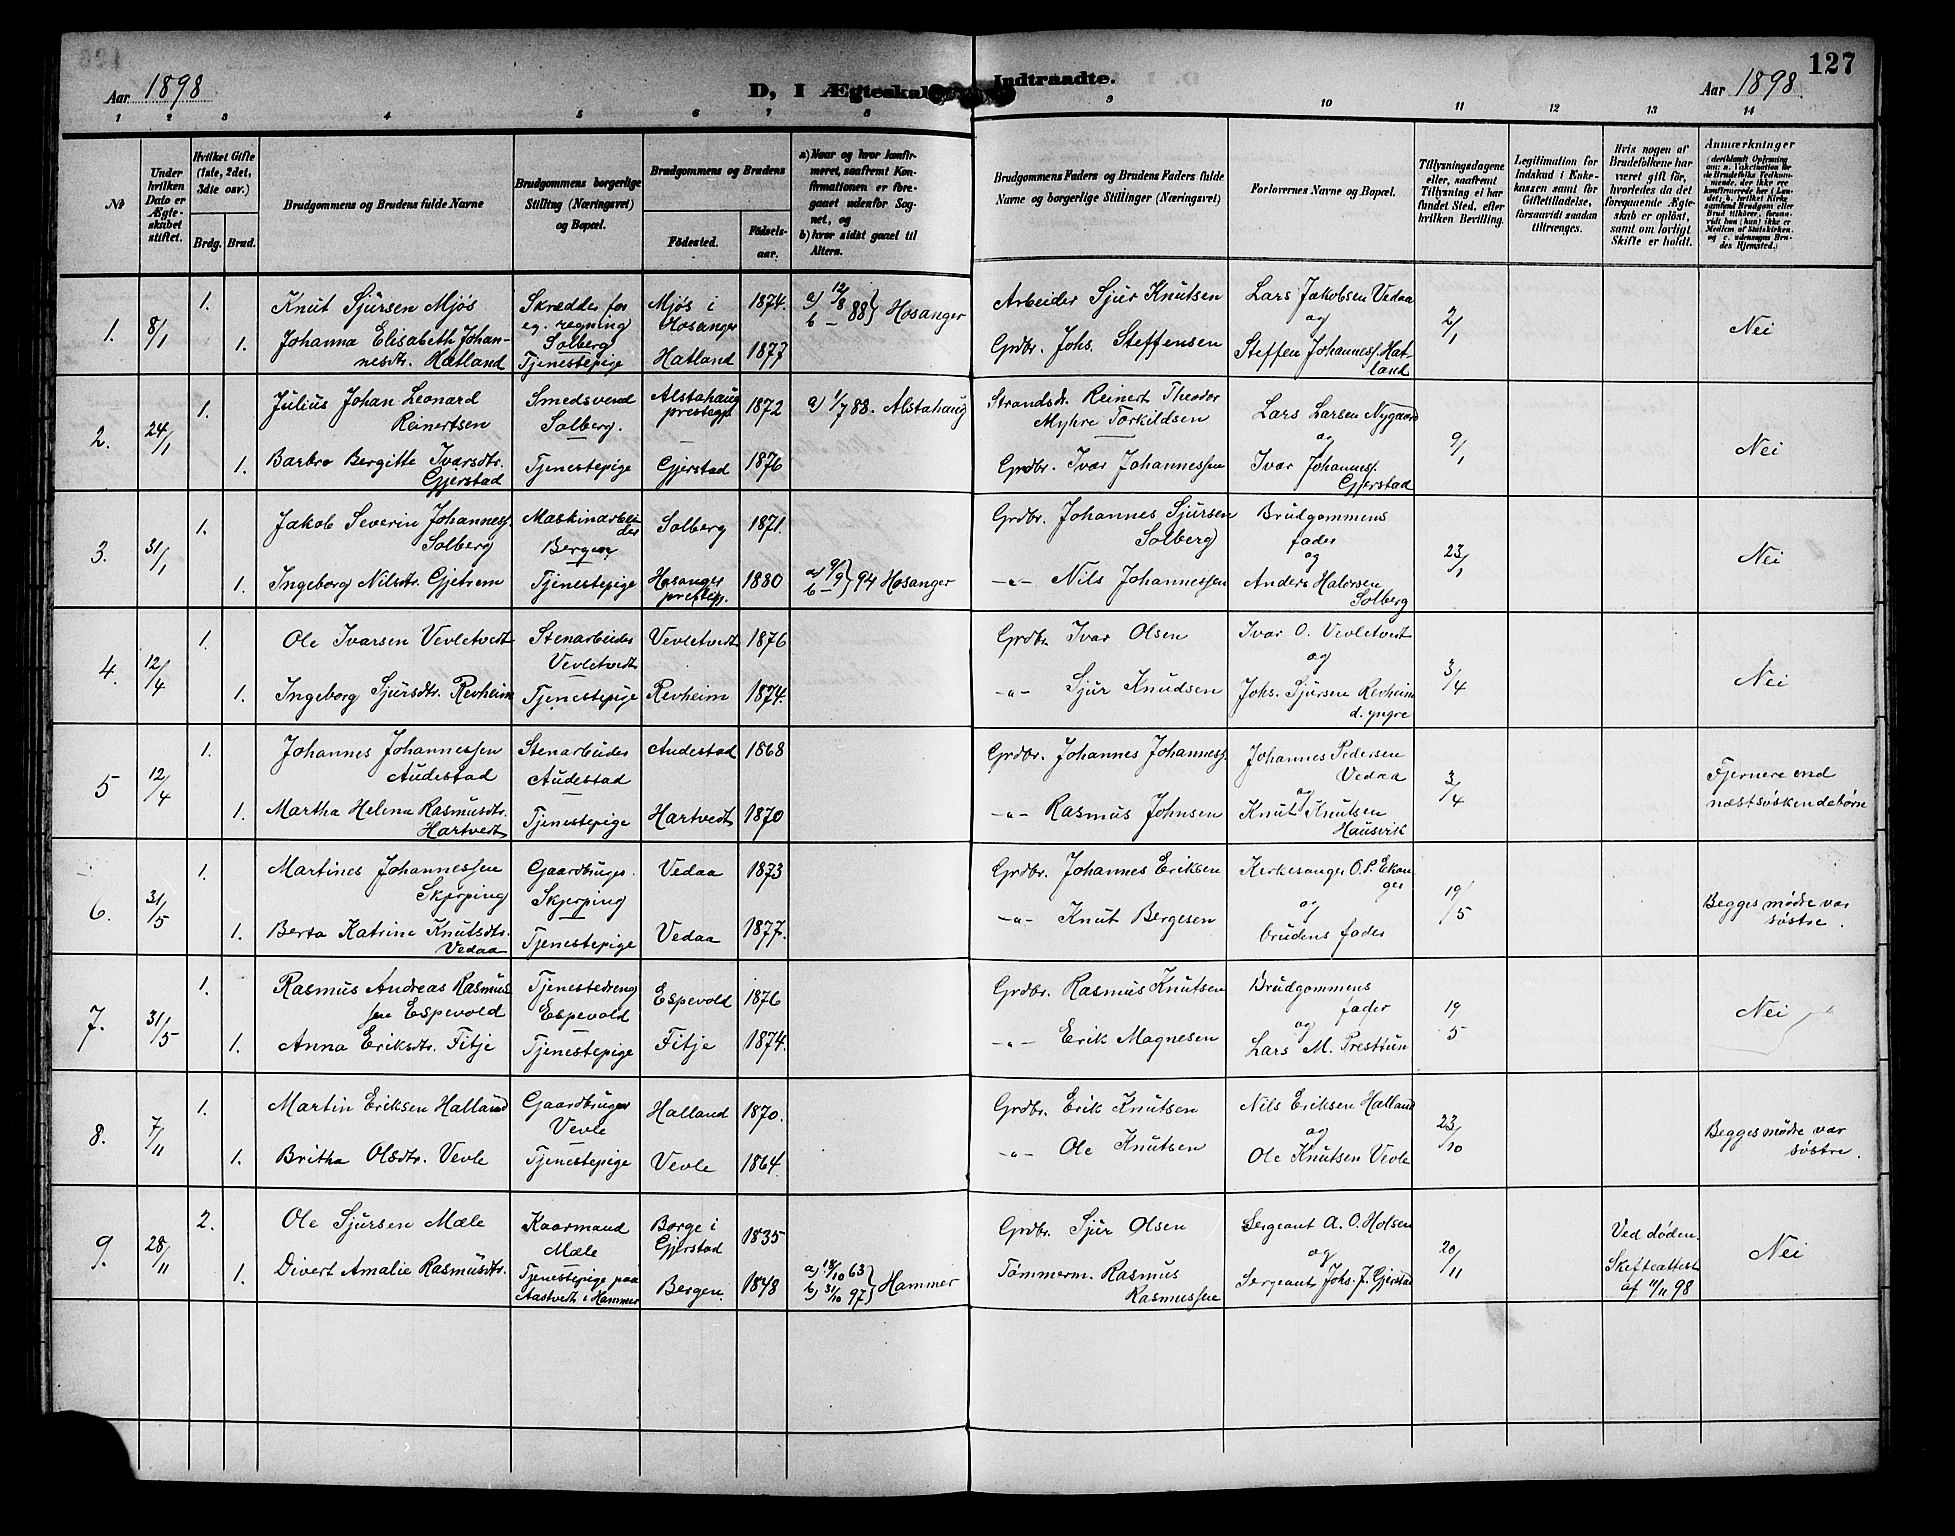 127
Aar 1898.
D, I Ægteskab Indtraadte.
Aar 1898.
1 2 3 4 5 6 7 8 9 10 11 12 13 14
No
Under hvilken Dato er Ægteskabet stiftet.
Hvilket Gifte (1ste, 2det, 3die osv.)
Brdg. Brud.
Brudgommens og Brudens fulde Navne
Brudgommens borgerlige Stilling (Næringsvei) og Bopæl.
Brudgommens og Brudens
Fødested.
Fødselsaar.
a) Naar og hvor konfirmeret, saafremt Konfirmationen er foregaaet udenfor Sognet, og
b) hvor sidst gaaet til Alters.
Brudgommens Faders og Brudens Faders fulde Navne og borgerlige Stillinger (Næringsvei)
Forlovernes Navne og Bopæl.
Tillysningsdagene eller, saafremt Tillysning ei har fundet Sted, efter hvilken Bevilling.
Legitimation for Indskud i Enkekassen samt for Giftetilladelse, forsaavidt saadan tiltrænges.
Hvis nogen af Brudefolkene har været gift før, hvorledes da det foregaaende Ægteskab er opløst, samt om lovligt Skifte er holdt.
Anmærkninger
1. 8/1 1. Knut Sjursen Mjøs Skrædder for eg. regning Solberg Mjøs i Hosanger 1874. a) 12/8 88 } Hosanger b – Arbeider Sjur Knutsen Lars Jakobsen Vedaa og 2/1 Nei
1. Johanna Elisabeth Johannesdtr. Hatland Tjenestepige Hatland 1877 Grdbr. Johs. Steffensen Steffen Johanness. Hatland
2. 24/1 1. Julius Johan Leonard Reinertsen Smedsvend Solberg. Alstahaug prestegjd 1872 a) 1/7 88. Alstahaug Strandsdr. Reinert Theodor Myhre Torkildsen Lars Larsen Nygaard og 9/1 Nei
1. Barbro Bergitte Ivarsdtr. Gjerstad Tjenestepige Gjerstad 1876 Grdbr. Ivar Johannessen Ivar Johanness. Gjerstad
3. 31/1 1. Jakob Severin Johanness. Solberg Maskinarbeider Bergen Solberg 1871. Grdbr. Johannes Sjursen Solberg Brudgommens fader og 23/1 Nei
1. Ingeborg Nilsdtr. Gjetrem Tjenestepige Hosanger prestegj. 1880 a) 9/9 } 94 Hosanger b – –"– Nils Johannessen Anders Halvorsen Solberg
4. 12/4 1. Ole Ivarsen Vevletvedt Stenarbeider Vevletvedt Vevletvedt 1876 Grdbr. Ivar Olsen Ivar O. Vevletvedt og 3/4 Nei
1. Ingeborg Sjursdtr. Revheim Tjenestepige Revheim 1874. –"– Sjur Knudsen Johs. Sjursen Revheim d. yngre
5 12/4 1. Johannes Johannessen Audestad Stenarbeider Audestad Audestad 1868 Grdbr. Johannes Johanness. Johannes Pedersen Vedaa og 3/4 Fjernere end næstsøskendebørn
1. Martha Helena Rasmusdtr. Hartvedt Tjenestepige Hartvedt 1870 –"– Rasmus Johnsen Knut Knutsen Hausvik
6. 31/5 1. Martines Johannessen Skjerping Gaardbruger. Skjerping Vedaa 1873 Grdbr. Johannes Eriksen Kirkesanger O. P. Ekanger og 19/5 Begges mødre var søstre.
1. Berta Katrine Knutsdtr. Vedaa Tjenestepige Vedaa 1877. –"– Knut Bergesen Brudens fader
7. 31/5 1. Rasmus Andreas Rasmussen Espevold Tjenestedreng Espevold Espevold 1876 Grdbr. Rasmus Knutsen Brudgommens fader og 19/5 Nei
1. Anna Eriksdtr. Fitje Tjenestepige Fitje 1874. –"– Erik Magnesen Lars M. Presttun
8. 7/11 1. Martin Eriksen Halland Gaardbruger Vevle Halland 1870. Grdbr. Erik Knutsen Nils Eriksen Halland og 23/10 Begges mødre var søstre.
1. Britha Olsdtr. Vevle Tjenestepige Vevle 1864. –"– Ole Knutsen Ole Knutsen Vevle
9. 28/11 2. Ole Sjursen Mæle Kaarmand Mæle Borge i Gjerstad 1835 Grdbr. Sjur Olsen Sergeant A. O. Holsen og 20/11 Ved døden. Skifteattest af 11/11 98 Nei
1. Divert Amalie Rasmusdtr. Tjenestepige paa Aastvedt i Hammer Bergen. 1848 a) 18/10 63 } Hammer b) 31/10 97 Tømmerm. Rasmus Rasmussen Sergeant Johs. J. Gjerstad